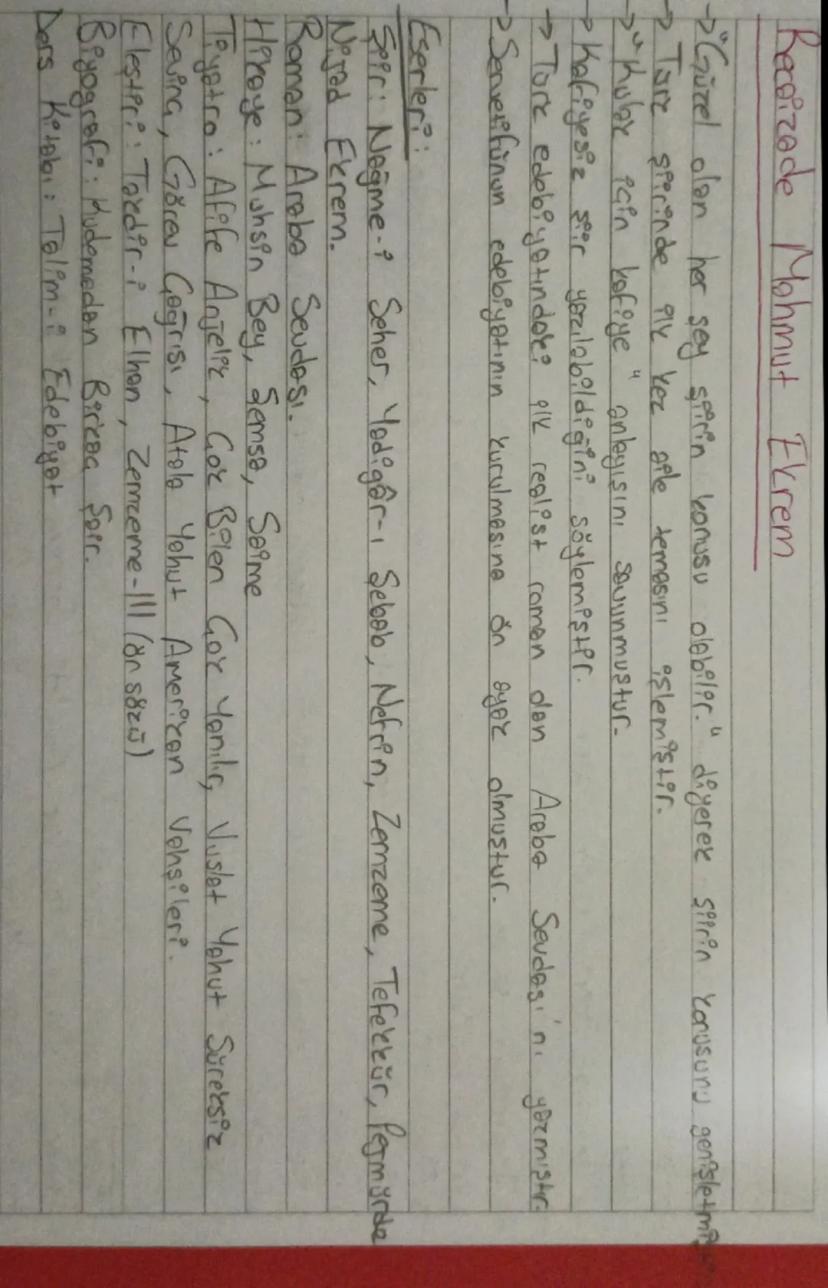 Recaizade Mahmut Ekrem
→ "Güzel olan her şey şiirin konusu olabilir." diyerek şiirin konusunu genişletmiş
→ Türk şiirinde ilk kez aile temasını işlemiştir.
→ "Kulak için kafiye" anlayışını savunmuştur.
→ Kafiyesiz şiir yazılabildiğini söylemiştir.
→ Türk edebiyatındaki ilk realist roman olan Araba Sevdası'nı yazmıştır.
→ Servetifünun edebiyatının kurulmasına ön ayak olmuştur.
Eserleri:
Şiir: Nağme-i Seher, Yadigâr-ı Şebab, Nefrin, Zemzeme, Tefekkür, Pejmürde
Nijad Ekrem.
Roman: Araba Sevdası.
Hikaye: Muhsin Bey, Şemsa, Saime
Tiyatro: Afife Anjelik, Çok Bilen Çok Yanılır, Vuslat Yahut Süreksiz
Sevinç, Görev Çağrısı, Atala Yahut Amerikan Vahşileri.
Eleştiri: Takdir-i Elhan, Zemzeme-III (ön sözü)
Biyografi: Kudemadan Birkaç Şair.
Ders Kitabı: Talim-i Edebiyat